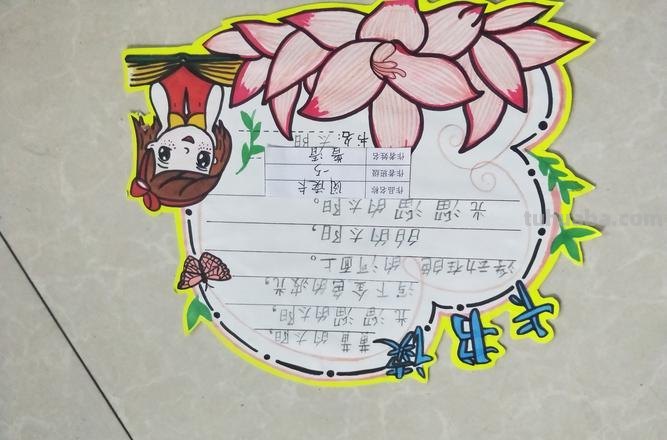 读书卡
黄黄的太阳。
光溜溜的太阳。
洒下金色的波光。
浮动在白色的河面上。
白白的太阳，
光溜溜的太阳。
作品名称 阅读卡
作者班级 一5
作者姓名
书名：太阳
tuhuaba.com